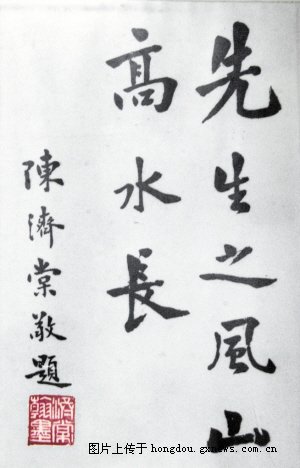 先生之風山
高水長
陳濟棠敬題
濟棠翰墨
图片上传于 hongdou.gxnews.com.cn